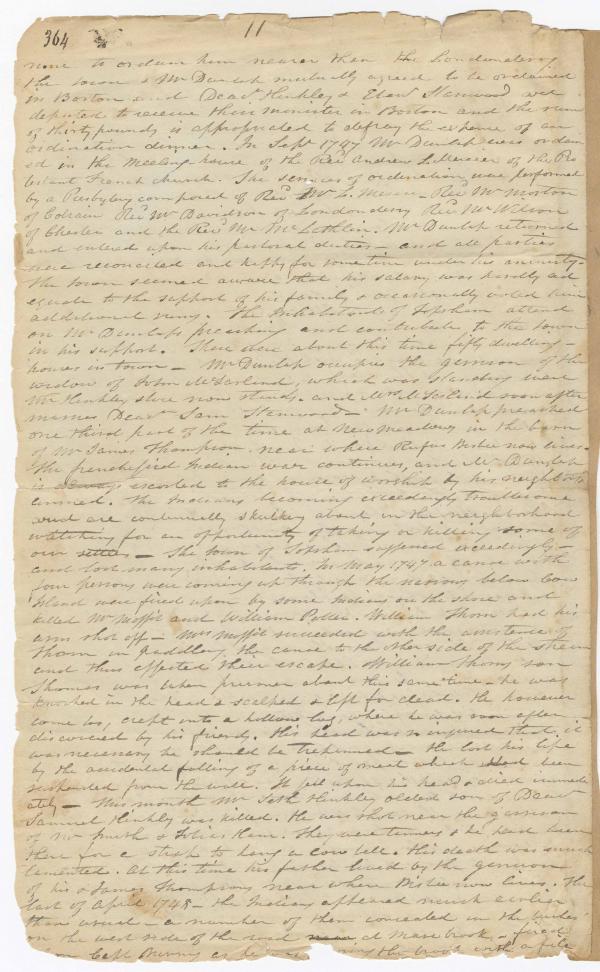 364
11
none to ordain him nearer than the Londonderry
the town & Mr Dunlap mutually agreed to be ordained
in Boston and Deacn Hinkley & Eben Stanwood were
deputed to receive their minister in Boston and the sum
of thirty pounds is appropriated to defray the expense of an
ordination dinner. In Sept 1747 Mr Dunlap was ordain
ed in the Meeting house of the Revd Andrew Le Mercier of the Pro
testant French church. The services of ordination were performed
by a Presbytery composed of Revd Mr Revd Mr Morton
of Colrain Revd Mr Davidson of Londonderry Revd Mr Wilson
of Chester and the Revd Mr McLothlin. Mr Dunlap returned
and entered upon his pastoral duties — and all parties
were reconciled and happy for sometime under his ministry.
The town seemed aware that his salary was hardly ad
equate to the support of his family & occasionally voted him
additional sums. The Inhabitants of Topsham attend
on Mr Dunlaps preaching and contribute to the town
in his support. There were about this time fifty dwelling
houses in town — Mr Dunlap occupies the garrison of the
widow of John McFarland, which was standing near
Mr Hinkley store now stands. and Mrs McFarland soon after
marries Deacn Sam Stanwood — Mr Dunlap preached
one third part of the time at New meadows in the barn
of Mr James Thompson near where Rufus Bisbee now lives.
The frenchified Indian war continues, and Mr Dunlap
is escorted to the house of worship by his neighbors
armed. The Indians becoming exceedingly troublesome
and are continually skulking about in the neighborhood
watching for an opportunity of taking or killing some of
our — The town of Topsham suffered exceedingly —
and lost many inhabitants. In May 1747 a canoe with
four persons were coming up through the narrows below Cow
Island were fired upon by some Indians on the shore and
killed Mr Moffit and William Potter. William Thorn had his
arm shot off — Mrs Moffit succeeded with the assistance of
Thorn in paddling the canoe to the other side of the stream
and thus effected their escape. William Thorns son
Thomas was taken prisoner about this same time — he was
knocked in the head & scalped & left for dead. He however
come too, crept into a hollow log, where he was soon after
discovered by his friends. His head was so injured that it
was necessary he should be trepanned — He lost his life
by the accidental falling of a piece of meat which had been
suspended from the wall. It fell upon his head & died immedi
ately — This month Mr Seth Hinkley oldest son of Deacn
Samuel Hinkley was killed. He was shot near the garrison
of Mr Smith & Tobias Ham. They were tanners & he had been
there for a strap to hang a cow bell. His death was much
lamented. At this time his father lived by the garrison
of his & James Thompsons near where Bisbee now lives. The
last of April 1748 — the Indians appeared much earlier
than usual — a number of them concealed in the bushes
on the west side of the road at Mare brook — fired
on Capt Burnus as he was the brook with a file